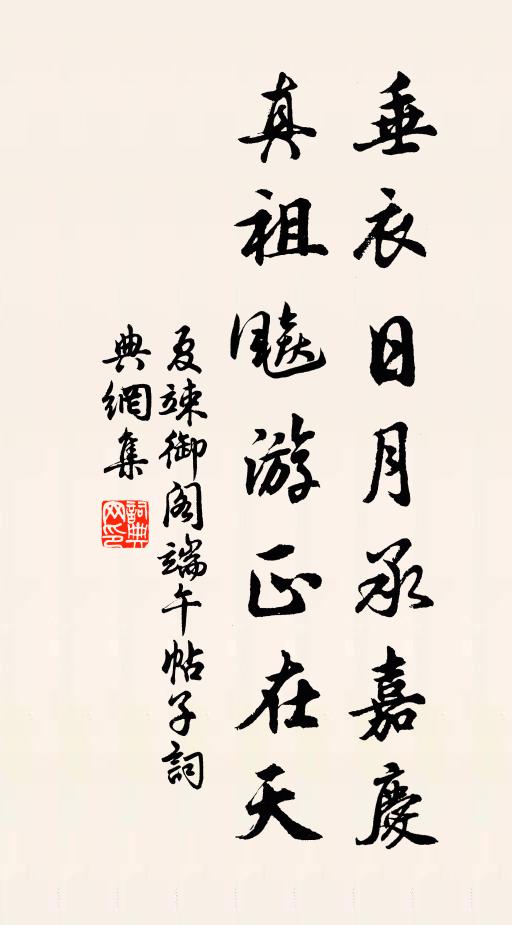 垂衣日月承嘉慶
真祖飈游正在天
夏竦御閣端午帖子詞
典網集
詞典网印